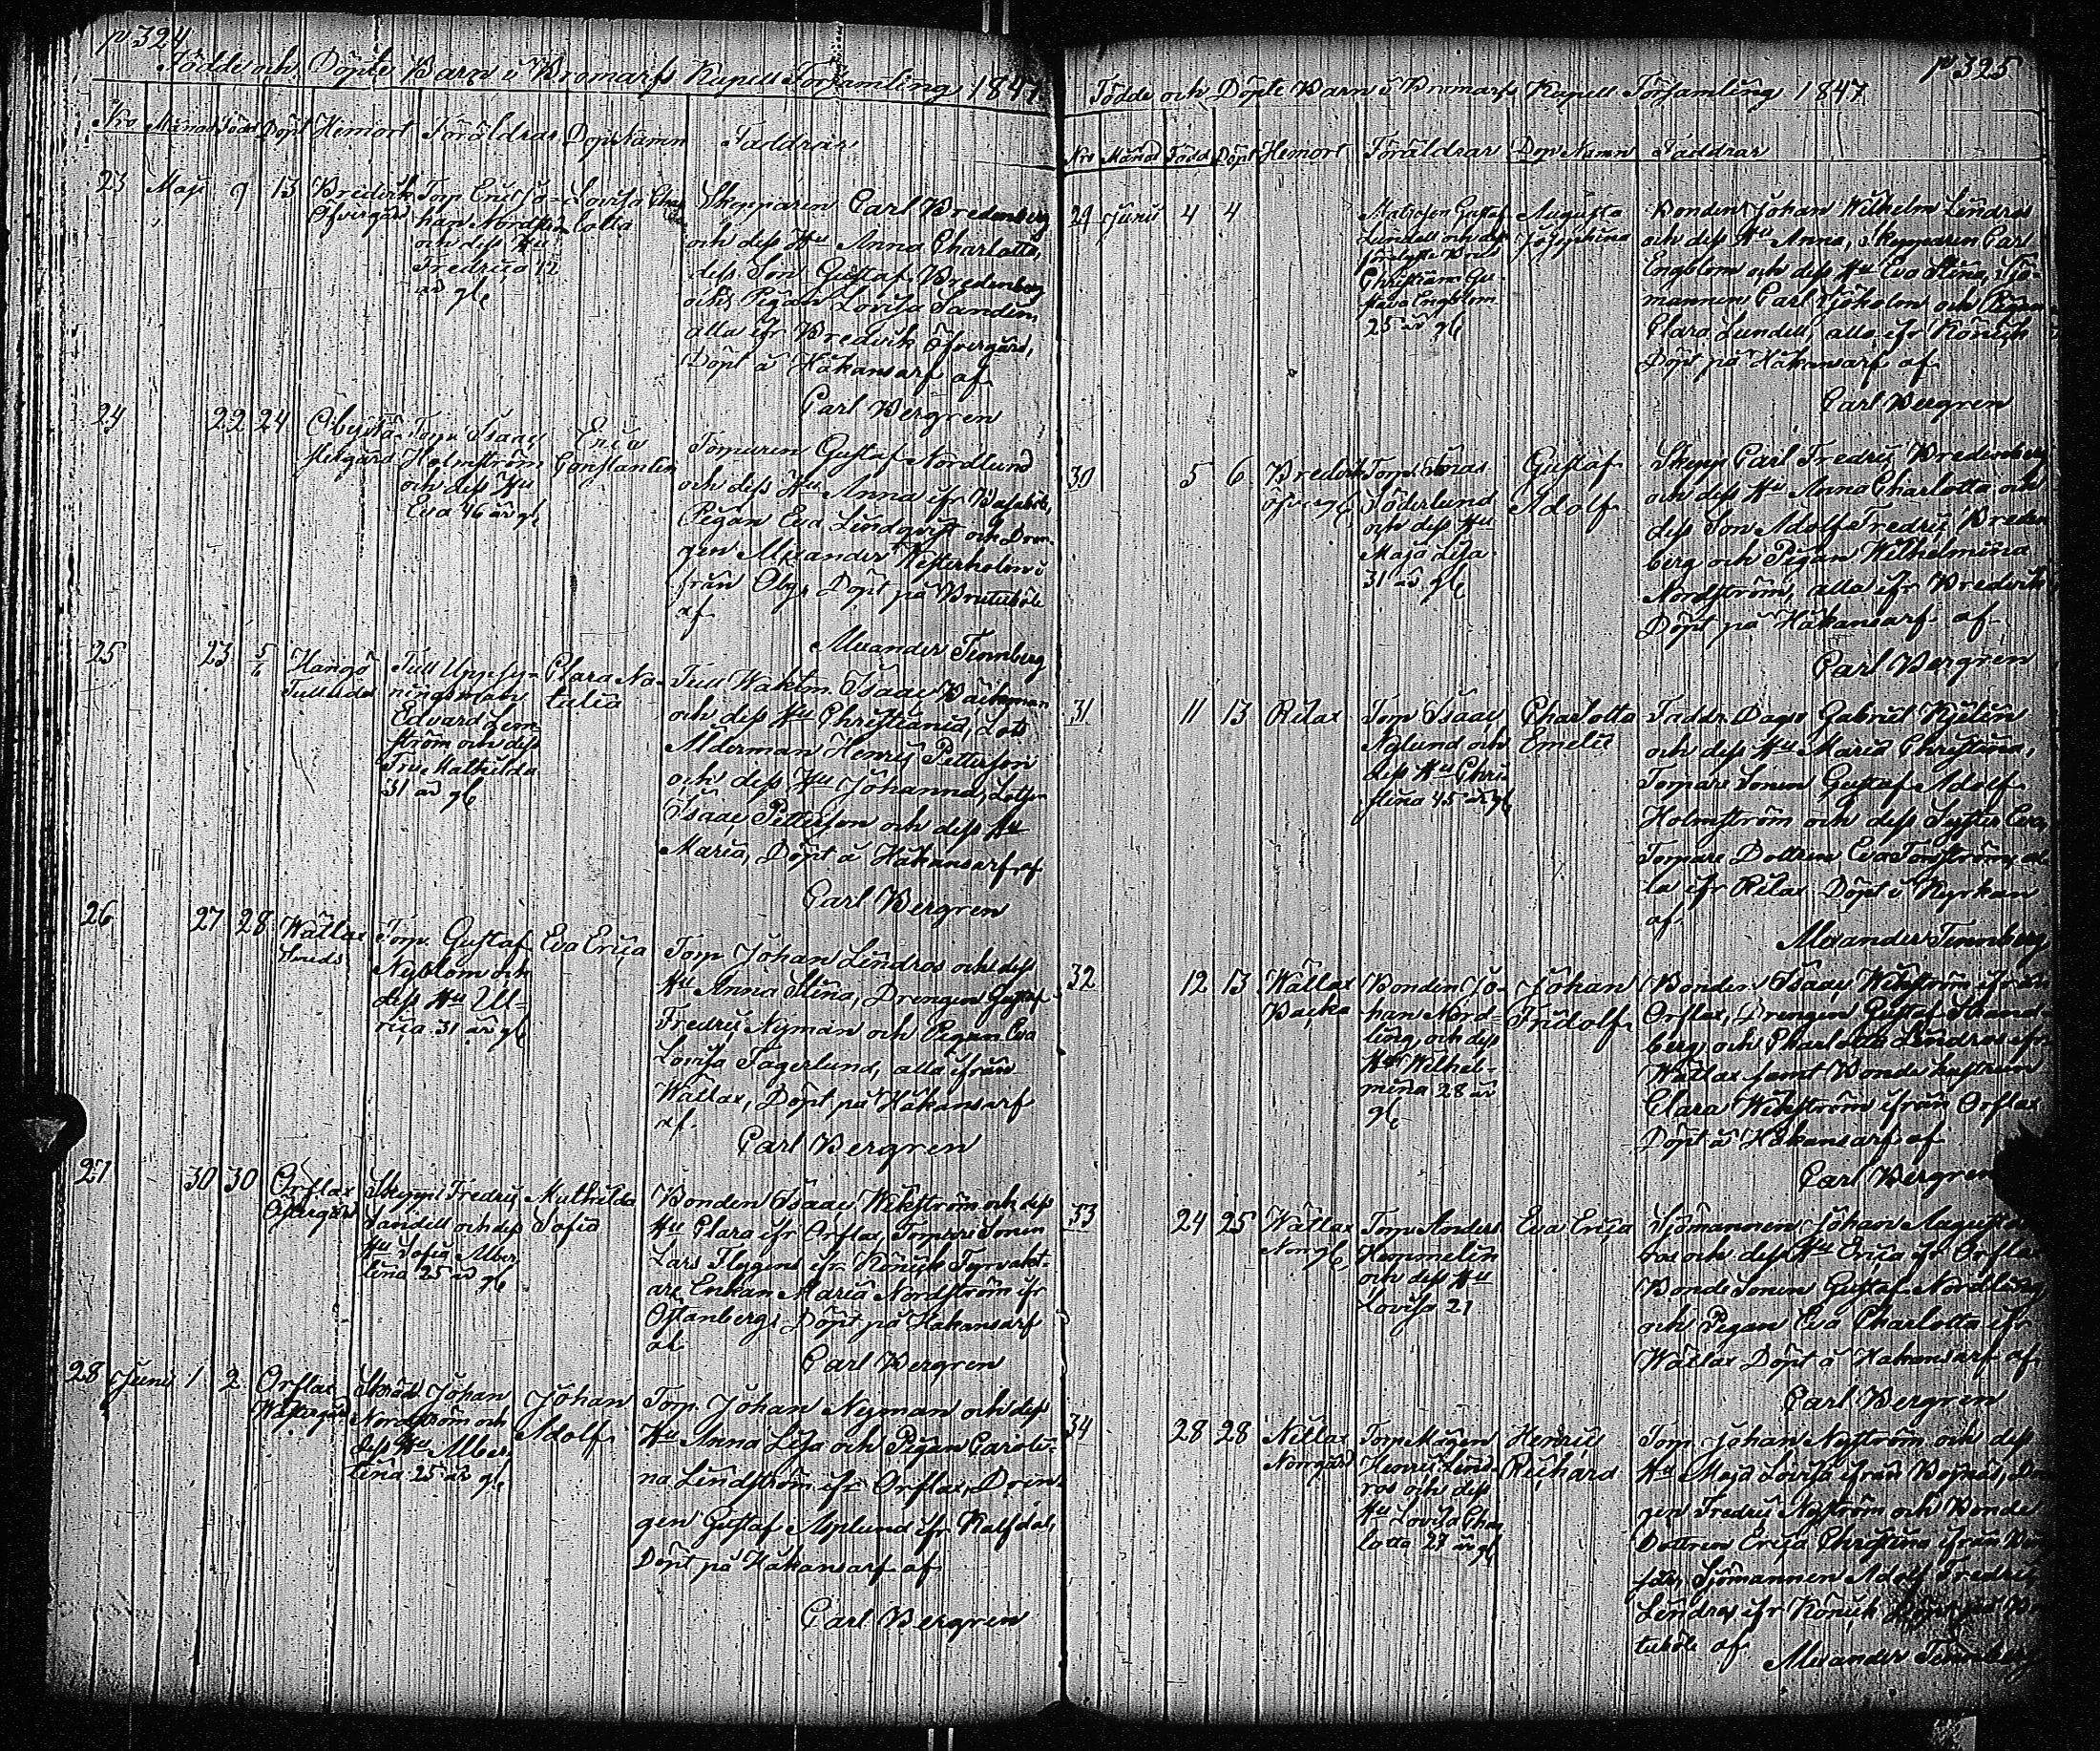 p 324
Födde och Döpte Barn i Bromarfs Kapell Församling 1847
Nro Månad Född Döpt Hemort Föräldrar Dop Namn Faddrar
23 Maji 9 13
Bredvik
Öfvergård
Torp Eric Jo-
han Nordst
och dess Hu
Fredrica 42
år gl
Lovisa Char
lotta
Skepparen Carl Bredenberg
och dess Hu Anna Charlotta,
dess Son Gustaf Bredenberg
och Pigan Lovisa Sandin,
alla ifr Bredvik Öfvergård,
Döpt å Håkansarf af
Carl Bergren
24 22 24
Torp Isaac
Holmström
och dess Hu
Eva 46 år gl
Erica
Constantin
Torparen Gustaf Nordlund
och dess Hu Anna ifr
Pigan Eva Lindqvist och Dren-
gen Alexander Westerholm i
från Döpt på Brutuböle
af
Alexander Tennberg
25 23 5/6
Hangö
Tulludd
Tull Uppsy-
ningsman
Edvard Lem-
ström och dess
Fru Mathilda
31 år gl
Clara Na-
talia
Tull Waktm Isaac Wäckman
och dess Hu Christiana, Lots
Alderman Henric Petterson
och dess Hu Johanna, Lotsen
Isaac Petterson och dess Hu
Maria, Döpt å Håkansarf af
Carl Bergren
26 27 28
Wättlax
Smeds
Torp. Gustaf
Nyblom och
dess Hu Ul-
rica 31 år gl
Eva Erica
Torp Johan Lindros och dess
Hu Anna Stina, Drengen Gustaf
Fredric Nyman och Pigan Eva
Lovisa Fagerlund, alla ifrån
Wättlax, Döpt på Håkansarf
af
Carl Bergren
27 30 30
Orflax
Öfvergård
Skepp Fredric
Sandell och dess
Hu Sofia Alber
tina 25 år gl
Mathilda
Sofia
Bonden Isaac Wikström och dess
Hu Clara ifr Orflax, Torpare Sonen
Lars Flygend ifr Känsik Fyrvakt-
are Enkan Maria Nordström ifr
Östanberg, Döpt på Håkansarf
af
Carl Bergren
28 Juni 1 2
Orflax
Westergård
Skrädd. Johan
Nordström och
dess Hu Alber
tina 25 år gl
Johan
Adolf
Torp. Johan Nyman och dess
Hu Anna Lisa och Pigan Caroli-
na Lindström ifr Orflax, Dren-
gen Gustaf Asplund ifr Kalfdal,
Döpt på Håkansarf af
Carl Bergren
p 325
Födde och Döpte Barn i Bromarfs Kapell Församling 1847
Nro Månad Född Döpt Hemort Föräldrar Dop Namn Faddrar
29 Junii 4 4
Matrosen Gustaf
Lundell och dess
Brud
Christiana Gu-
stava Engblom
25 år gl
Augusta
Josephina
Bonden Johan Wilhelm Lindros
och dess Hu Anna, Skepparen Carl
Engblom och dess Hu Eva Stina, Sjö-
mannen Carl Sjöholm och Pigan
Clara Lundell, alla ifr Känsik
Döpt på Håkansarf af
Carl Bergren
30 5 6
Bredvik
öfverg
Torp
Söderlund
och dess Hu
Maja Lisa
31 år gl
Gustaf
Adolf
Skepp Carl Fredric Bredenberg
och dess Hu Anna Charlotta och
dess Son Adolf Fredric Breden
berg och Pigan Wilhelmina
Nordström, alla ifr Bredvik
Döpt på Håkansarf af
Carl Bergren
31 11 13 Rilax
Torp Isaac
Nylund och
dess Hu Chri
stina 45 år gl
Charlotta
Emelie
Gabriel Kjelin
och dess Hu Maria Christina,
Torpare Sonen Gustaf Adolf
Holmström och dess Syster Eva,
Torpare Dottren Eva Forsström, al
la ifr Rilax Döpt i Kyrkan
af
Alexander Tennberg
32 12 13
Wättlax
Backa
Bonden Jo-
han Nord-
ling och dess
Hu Wilhel-
mina 28 år
gl
Johan
Fridolf
Bonden Isaac Wikström ifrån
Orflax, Drengen Gustaf Strand-
berg och Charlotta Lindros ifr
Wättlax samt Bonde hustrun
Clara Wikström ifrån Orflax
Döpt å Håkansarf af
Carl Bergren
33 24 25
Wättlax
Norrg
Torp Anders
Hemmelin
och dess Hu
Lovisa 21
Eva Erica
Sjömannen Johan August
ros och dess Hu Erica ifr Orflax
Bonde Sonen Gustaf Nordling
och Pigan Eva Charlotta ifr
Wättlax Döpt å Håkansarf af
Carl Bergren
34 28 28
Nitlax
Norrgård
Torp Mågen
Henric Lind-
ros och dess
Hu Lovisa Char
lotta 27 år gl
Henric
Richard
Torp Johan Nyström och dess
Hu Maja Lovisa ifrån Dren
gen Fredric Nyström och Bonde
Dottren Erica Christina ifrån
Sjömannen Adolf Fredric
Lindros ifr Känsik Döpt på Bru
tuböle af Alexander Tennberg